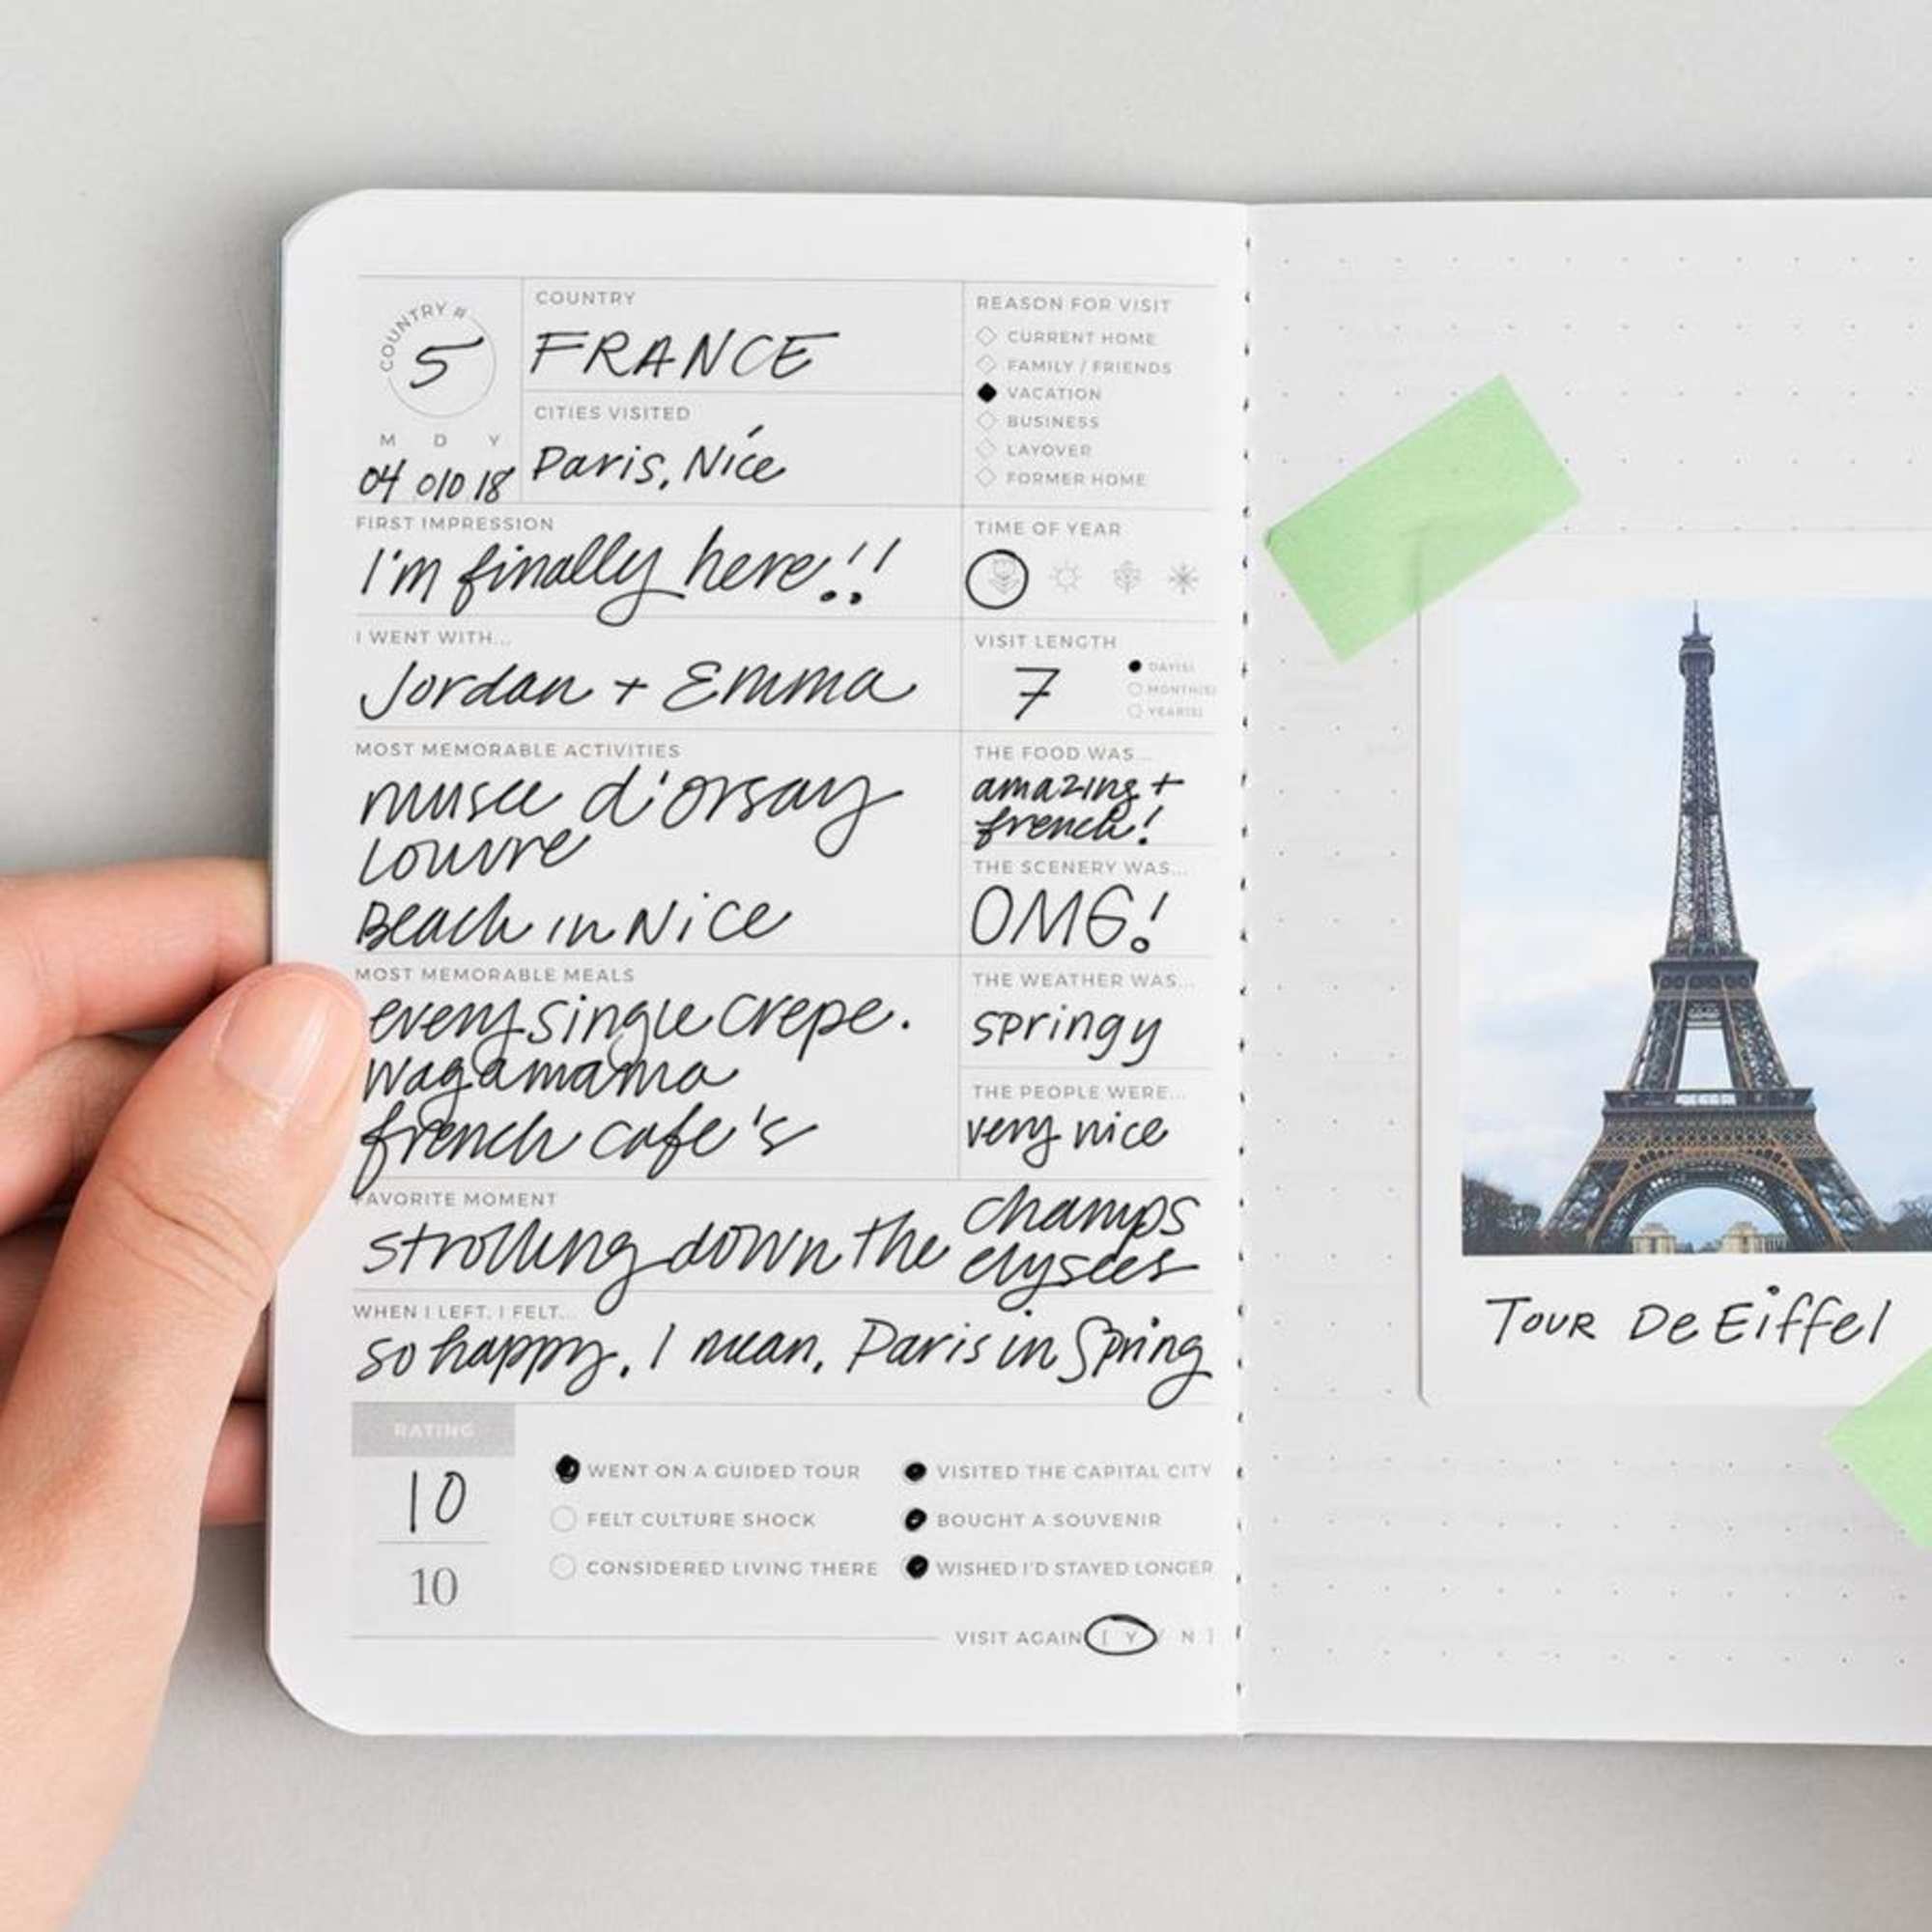 COUNTRY #
5
M D Y
04 010 18
COUNTRY
FRANCE
CITIES VISITED
Paris, Nice
REASON FOR VISIT
CURRENT HOME
FAMILY / FRIENDS
VACATION
BUSINESS
LAYOVER
FORMER HOME
FIRST IMPRESSION
I'm finally here!!
TIME OF YEAR
I WENT WITH...
Jordan + Emma
VISIT LENGTH
7
DAY(S)
MONTH(S)
YEAR(S)
MOST MEMORABLE ACTIVITIES
musee d'orsay
Louvre
Beach in Nice
THE FOOD WAS...
amazing +
french!
THE SCENERY WAS...
OMG!
MOST MEMORABLE MEALS
every single crepe.
wagamama
french cafe's
THE WEATHER WAS...
springy
THE PEOPLE WERE...
very nice
FAVORITE MOMENT
strolling down the champs
elysees
WHEN I LEFT, I FELT...
so happy. I mean, Paris in Spring
RATING
10
10
WENT ON A GUIDED TOUR
FELT CULTURE SHOCK
CONSIDERED LIVING THERE
VISITED THE CAPITAL CITY
BOUGHT A SOUVENIR
WISHED I'D STAYED LONGER
VISIT AGAIN [ Y / N ]
TOUR De Eiffel